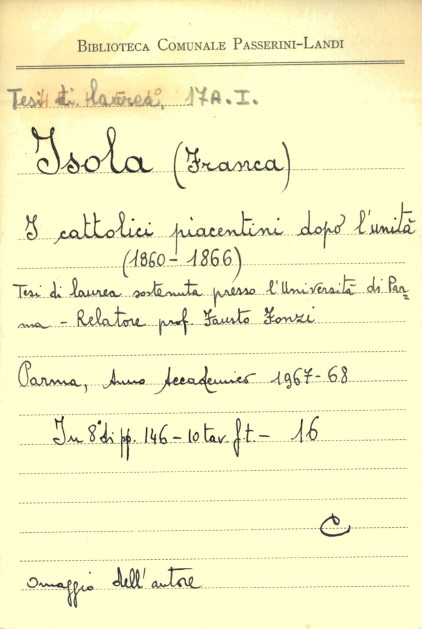 BIBLIOTECA COMUNALE PASSERINI-LANDI
Tesi di laurea, 17A.I.
Isola (Franca)
I cattolici piacentini dopo l'unità
(1860-1866)
Tesi di laurea sostenuta presso l'Università di Par=
ma - Relatore prof. Fausto Fonzi
Parma, Anno Accademico 1967-68
In 8° di pp. 146 - 10 tav. f.t. - 16
C
Omaggio dell'autore